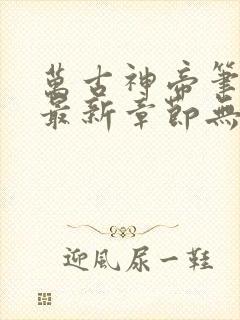 萬古神帝筆
最新章節無
迎風尿一鞋